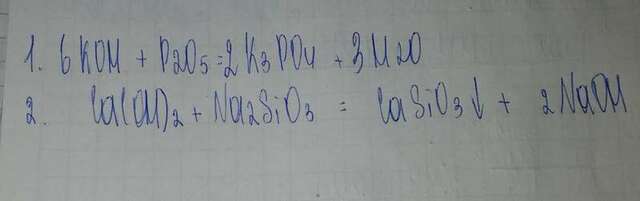 1. 6KOH + P2O5 = 2K3PO4 + 3H2O
2. Ca(OH)2 + Na2SiO3 = CaSiO3↓ + 2NaOH